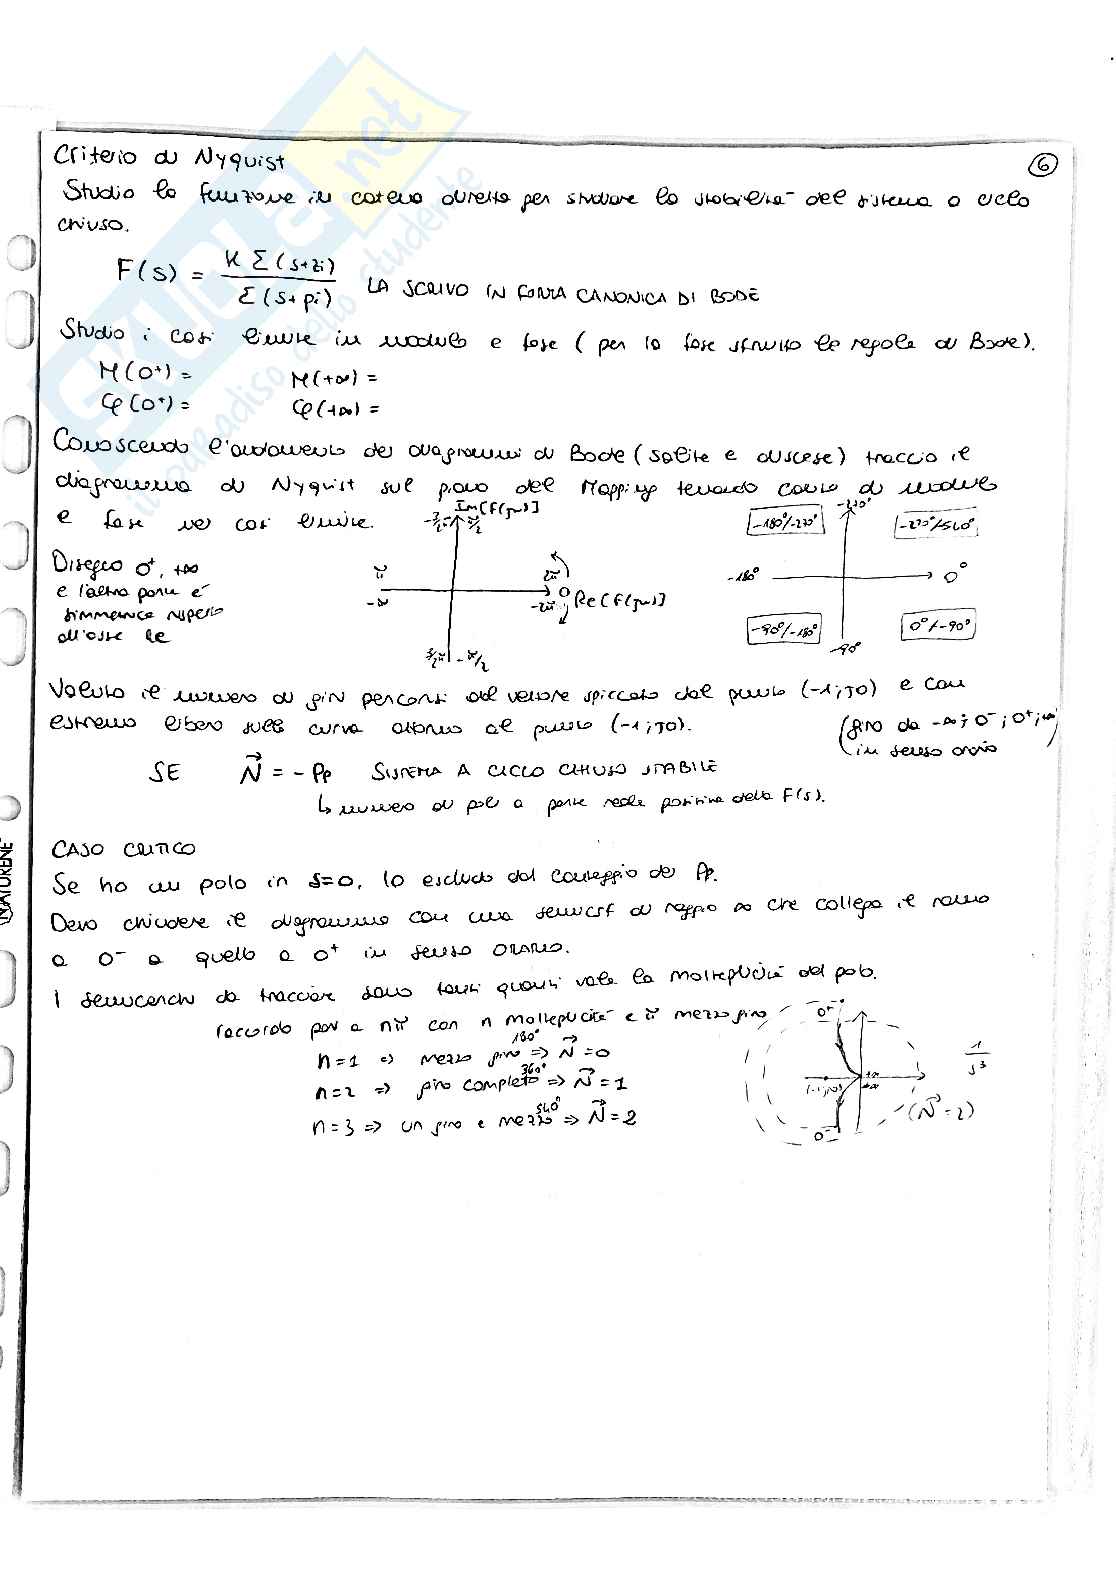 Criterio di Nyquist
6
Studio la funzione in catena diretta per studiare la stabilità del sistema a ciclo
chiuso.
F(s) = K Σ(s+zi) / Σ(s+pi) LA SCRIVO IN FORMA CANONICA DI BODE
Studio i casi limite in modulo e fase (per la fase sfrutto le regole di Bode).
M(0⁺) = M(+∞) =
φ(0⁺) = φ(+∞) =
Conoscendo l'andamento dei diagrammi di Bode (salite e discese) traccio il
diagramma di Nyquist sul piano del Mapping tenendo conto di modulo
e fase nei casi limite.
Im[F(jω)]
-3/2π π/2
π
-π
2π
-2π
0 Re[F(jω)]
3/2π -π/2
-270°
-180°/-270°
-270°/-360°
-180°
0°
-90°/-180°
0°/-90°
-90°
Disegno 0⁺, +∞
e l'altra parte è
simmetrica rispetto
all'asse Re
Valuto il numero di giri percorsi dal vettore spiccato dal punto (-1; J0) e con
estremo libero sulla curva attorno al punto (-1; J0).
(giro da -∞; 0⁻; 0⁺; ∞
in senso orario)
SE N⃗ = - Pp SISTEMA A CICLO CHIUSO STABILE
↳ numero di poli a parte reale positiva della F(s).
CASO CRITICO
Se ho un polo in s=0, lo escludo dal conteggio dei Pp.
Devo chiudere il diagramma con una semicrf di raggio ∞ che collega il ramo
a 0⁻ a quello a 0⁺ in senso ORARIO.
I semicerchi da tracciare sono tanti quanti vale la molteplicità del polo.
raccordo pari a nπ con n molteplicità e π mezzo giro
n=1 => mezzo giro 180° => N⃗ =0
n=2 => giro completo 360° => N⃗ =1
n=3 => un giro e mezzo 540° => N⃗ =2
0⁺
1/s³
(-1; J0)
+∞
-∞
0⁻
(N⃗ =2)
SKUOLA.net
il paradiso dello studente